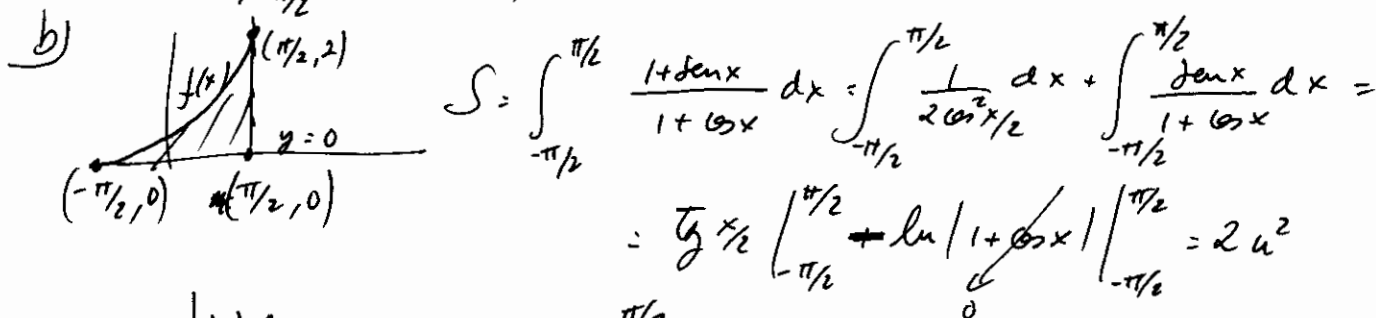 π/2
b)
(π/2, 2)
f(x)
y = 0
(-π/2, 0) (π/2, 0)
S = ∫_{-π/2}^{π/2} (1+senx)/(1+cosx) dx = ∫_{-π/2}^{π/2} 1/(2cos²x/2) dx + ∫_{-π/2}^{π/2} senx/(1+cosx) dx =
= Tg x/2 |_{-π/2}^{π/2} - ln|1+cosx| |_{-π/2}^{π/2} = 2 u²
0
π/2